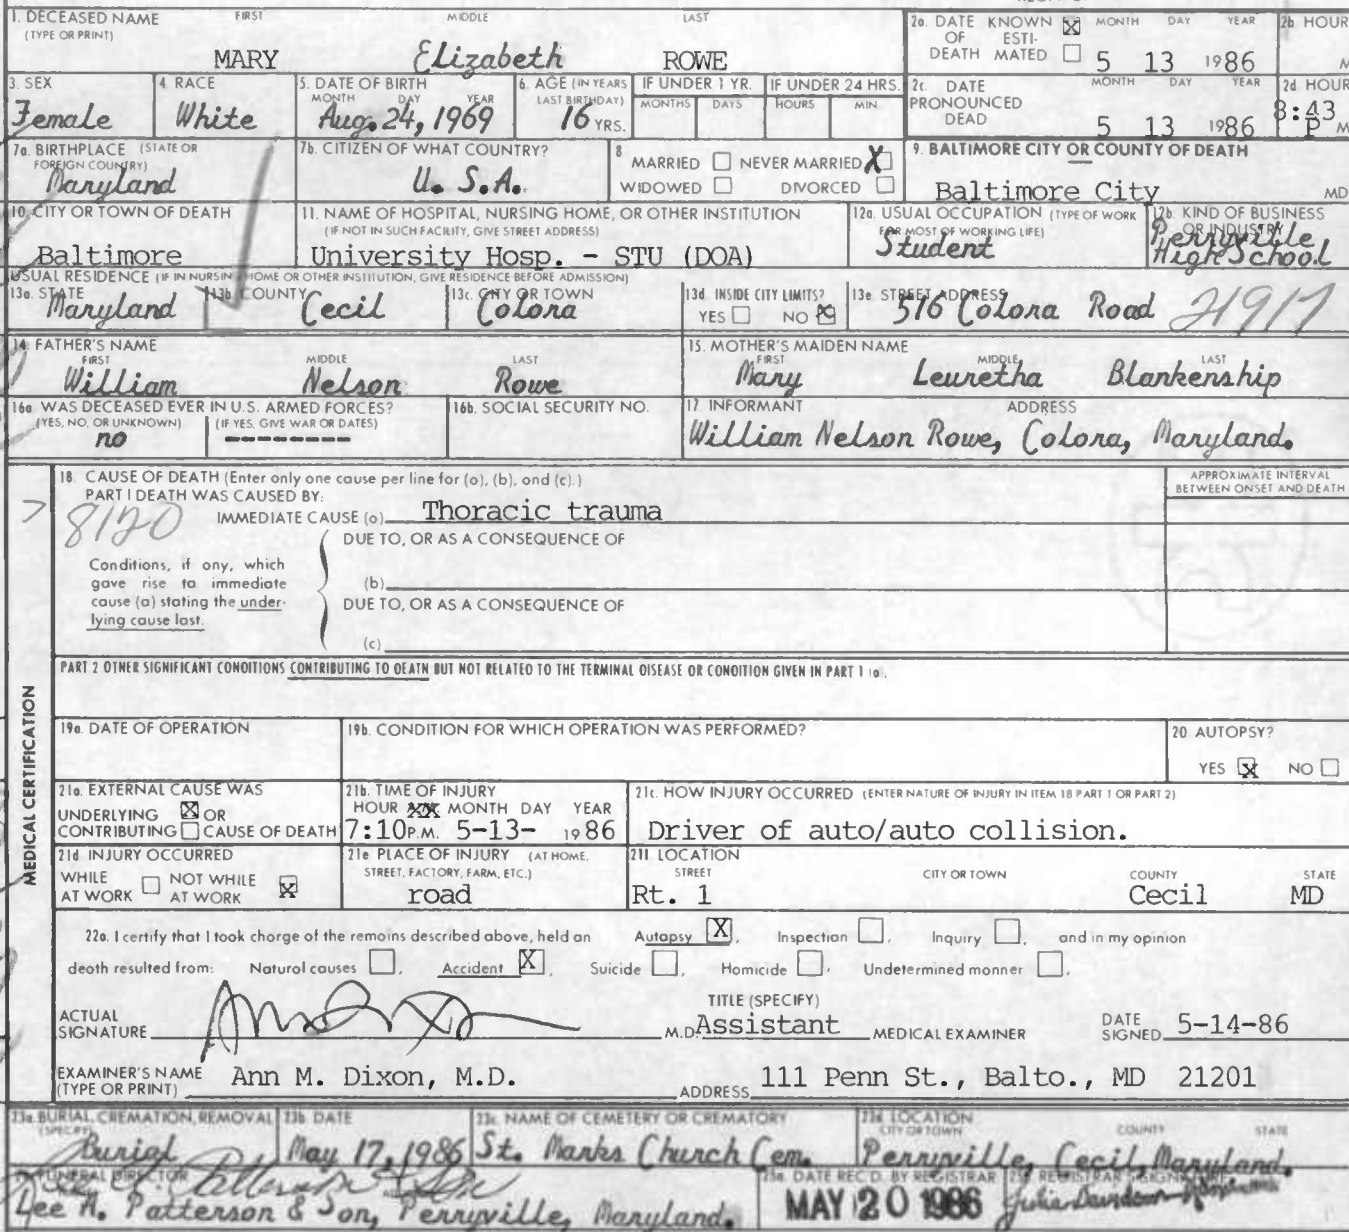 1. DECEASED NAME (TYPE OR PRINT) FIRST MIDDLE LAST
MARY Elizabeth ROWE
2a. DATE OF DEATH KNOWN ☒ ESTIMATED ☐ MONTH DAY YEAR 5 13 1986
2b. HOUR M
3. SEX Female
4. RACE White
5. DATE OF BIRTH MONTH DAY YEAR Aug. 24, 1969
6. AGE (IN YEARS LAST BIRTHDAY) 16 YRS.
IF UNDER 1 YR. MONTHS DAYS
IF UNDER 24 HRS. HOURS MIN.
2c. DATE PRONOUNCED DEAD MONTH DAY YEAR 5 13 1986
2d. HOUR 8:43 P M
7a. BIRTHPLACE (STATE OR FOREIGN COUNTRY) Maryland
7b. CITIZEN OF WHAT COUNTRY? U. S. A.
8 MARRIED ☐ NEVER MARRIED ☒ WIDOWED ☐ DIVORCED ☐
9. BALTIMORE CITY OR COUNTY OF DEATH Baltimore City MD
10. CITY OR TOWN OF DEATH Baltimore
11. NAME OF HOSPITAL, NURSING HOME, OR OTHER INSTITUTION (IF NOT IN SUCH FACILITY, GIVE STREET ADDRESS)
University Hosp. - STU (DOA)
12a. USUAL OCCUPATION (TYPE OF WORK FOR MOST OF WORKING LIFE) Student
12b. KIND OF BUSINESS OR INDUSTRY Perryville High School
USUAL RESIDENCE (IF IN NURSING HOME OR OTHER INSTITUTION, GIVE RESIDENCE BEFORE ADMISSION)
13a. STATE Maryland
13b. COUNTY Cecil
13c. CITY OR TOWN Colora
13d. INSIDE CITY LIMITS? YES ☐ NO ☒
13e. STREET ADDRESS 516 Colora Road 21917
14. FATHER'S NAME FIRST MIDDLE LAST
William Nelson Rowe
15. MOTHER'S MAIDEN NAME FIRST MIDDLE LAST
Mary Leuretha Blankenship
16a. WAS DECEASED EVER IN U.S. ARMED FORCES? (YES, NO, OR UNKNOWN) (IF YES, GIVE WAR OR DATES)
no --------
16b. SOCIAL SECURITY NO.
17. INFORMANT ADDRESS
William Nelson Rowe, Colora, Maryland.
MEDICAL CERTIFICATION
18. CAUSE OF DEATH (Enter only one cause per line for (a), (b), and (c).)
APPROXIMATE INTERVAL BETWEEN ONSET AND DEATH
PART I DEATH WAS CAUSED BY:
8120
IMMEDIATE CAUSE (a) Thoracic trauma
DUE TO, OR AS A CONSEQUENCE OF
Conditions, if any, which gave rise to immediate cause (a) stating the underlying cause last.
(b)
DUE TO, OR AS A CONSEQUENCE OF
(c)
PART 2 OTHER SIGNIFICANT CONDITIONS CONTRIBUTING TO DEATH BUT NOT RELATED TO THE TERMINAL DISEASE OR CONDITION GIVEN IN PART 1 (a).
19a. DATE OF OPERATION
19b. CONDITION FOR WHICH OPERATION WAS PERFORMED?
20. AUTOPSY? YES ☒ NO ☐
21a. EXTERNAL CAUSE WAS UNDERLYING ☒ OR CONTRIBUTING ☐ CAUSE OF DEATH
21b. TIME OF INJURY HOUR MONTH DAY YEAR
7:10 P.M. 5-13- 1986
21c. HOW INJURY OCCURRED (ENTER NATURE OF INJURY IN ITEM 18 PART 1 OR PART 2)
Driver of auto/auto collision.
21d INJURY OCCURRED WHILE AT WORK ☐ NOT WHILE AT WORK ☒
21e PLACE OF INJURY (AT HOME, STREET, FACTORY, FARM, ETC.) road
21f LOCATION STREET CITY OR TOWN COUNTY STATE
Rt. 1 Cecil MD
22a. I certify that I took charge of the remains described above, held an Autopsy ☒, Inspection ☐, Inquiry ☐, and in my opinion
death resulted from: Natural causes ☐, Accident ☒, Suicide ☐, Homicide ☐, Undetermined manner ☐.
ACTUAL SIGNATURE M.D. TITLE (SPECIFY) Assistant MEDICAL EXAMINER DATE SIGNED 5-14-86
EXAMINER'S NAME (TYPE OR PRINT) Ann M. Dixon, M.D. ADDRESS 111 Penn St., Balto., MD 21201
23a. BURIAL, CREMATION, REMOVAL (SPECIFY) Burial
23b. DATE May 17, 1986
23c. NAME OF CEMETERY OR CREMATORY St. Marks Church Cem.
23d. LOCATION CITY OR TOWN COUNTY STATE
Perryville, Cecil, Maryland.
FUNERAL DIRECTOR
Lee A. Patterson & Son, Perryville, Maryland.
25a. DATE REC'D. BY REGISTRAR MAY 20 1986
25b. REGISTRAR'S SIGNATURE